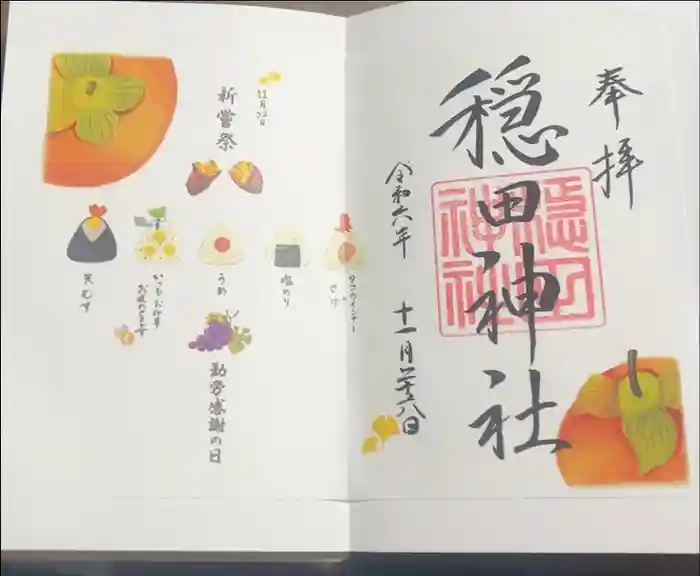 奉拝
穏田神社
穏田神社
令和六年 十一月二十八日
11月23日
新嘗祭
タコウインナー
さけ
塩のり
うめ
いつもお仕事
お疲れさまです
天むす
勤労感謝の日